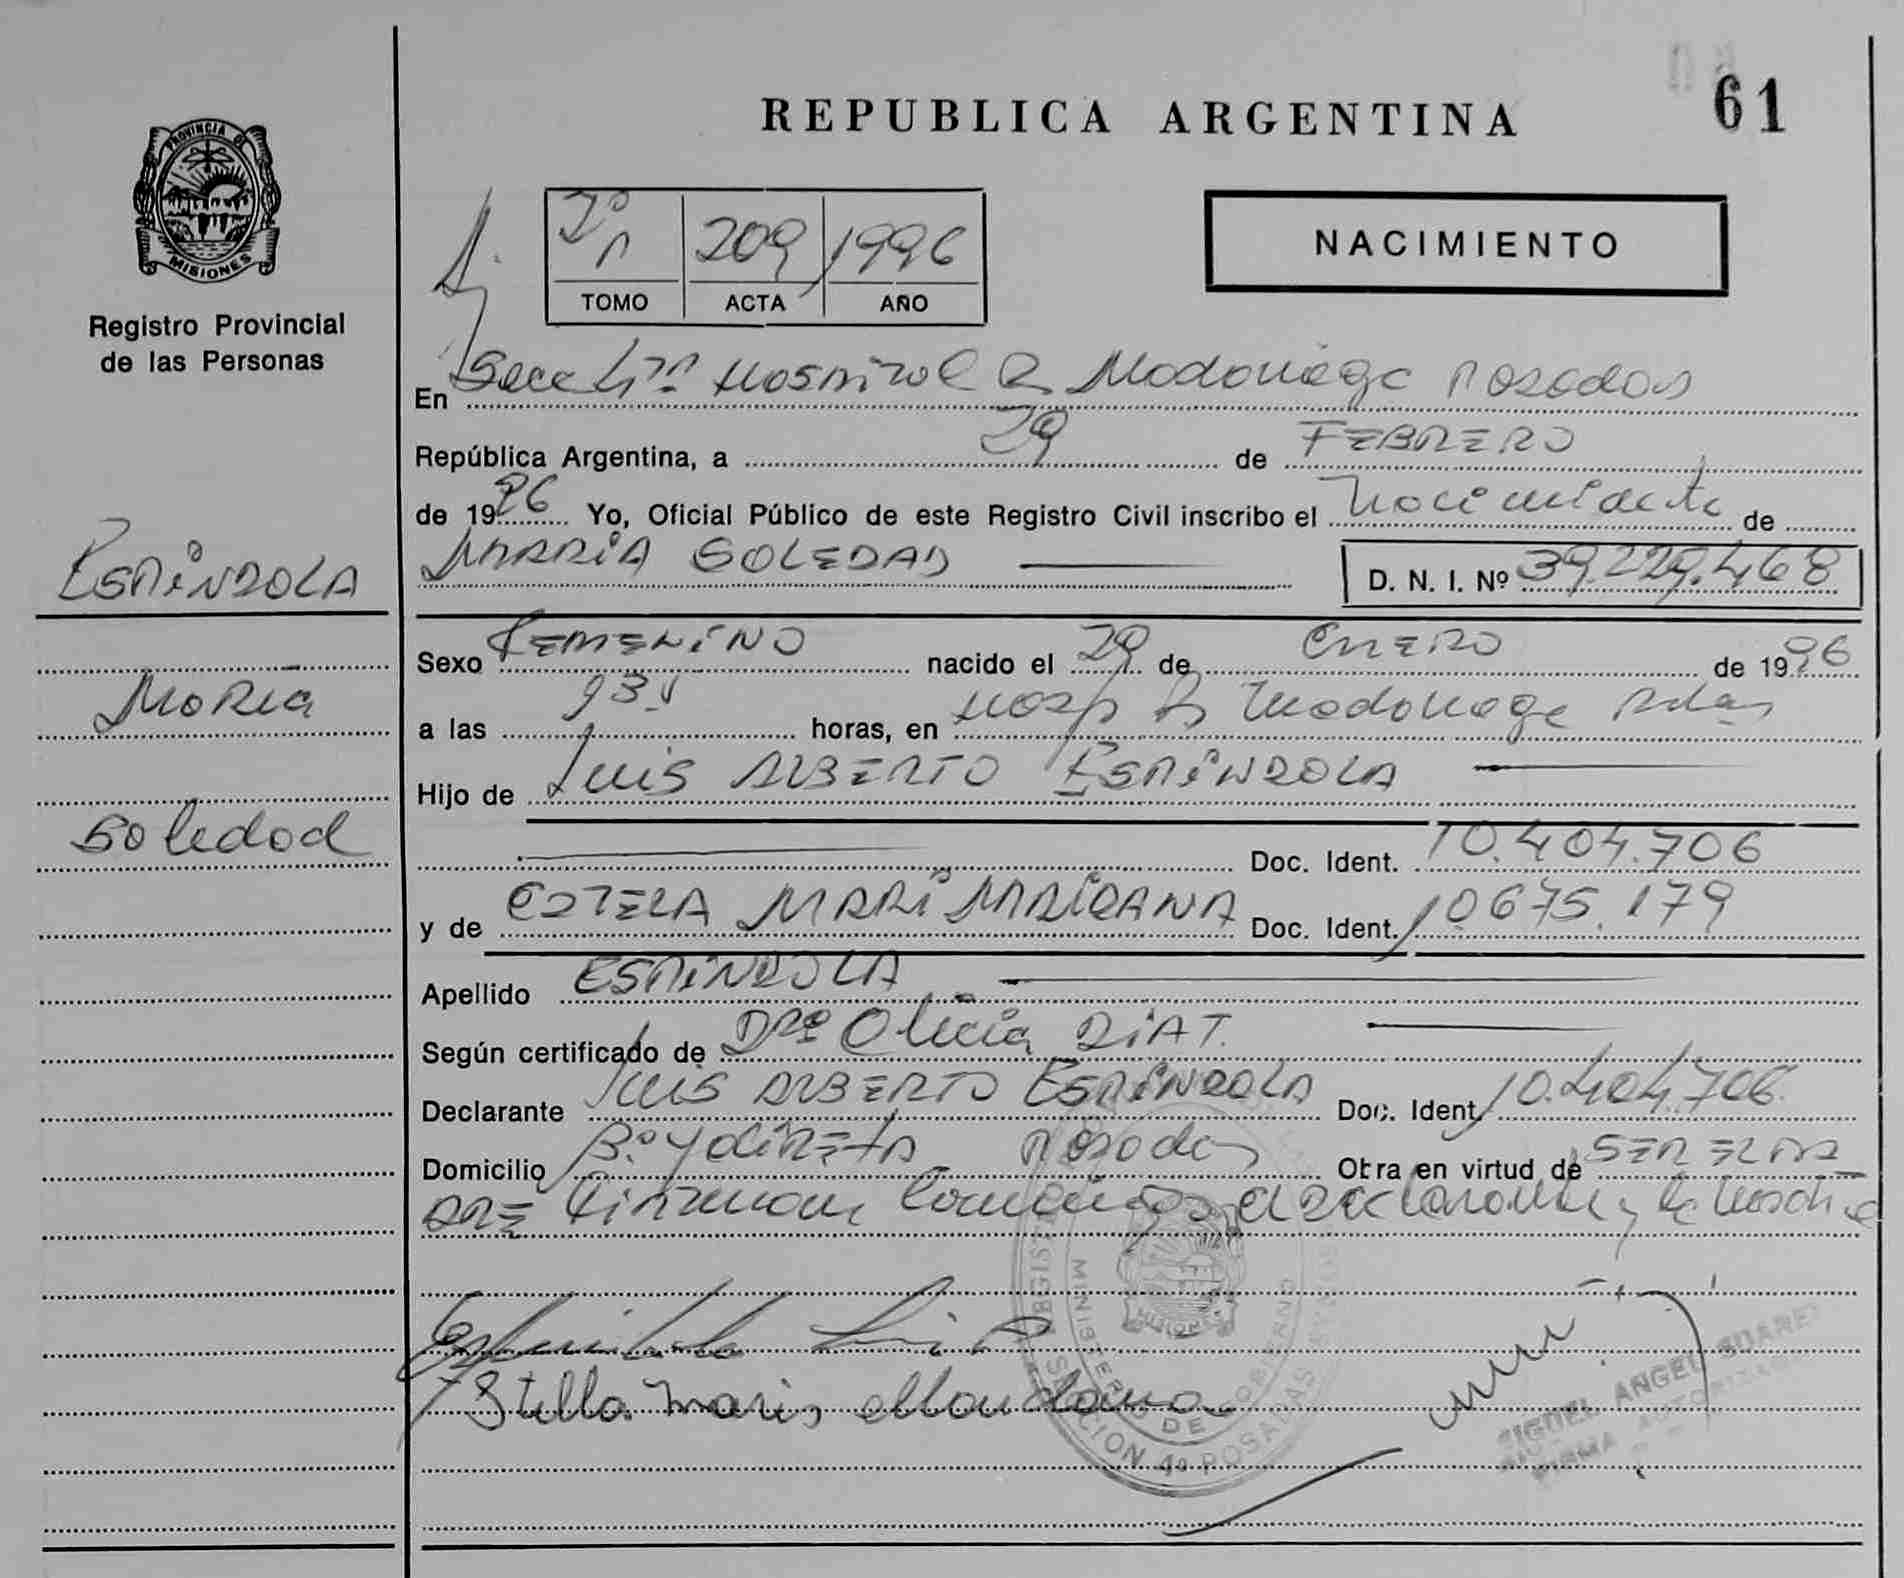 REPUBLICA ARGENTINA
61
PROVINCIA DE
MISIONES
Registro Provincial
de las Personas
Tº 209 1996
TOMO ACTA AÑO
NACIMIENTO
En Secc 4ta Hospital R Madariaga Posadas
República Argentina, a 29 de FEBRERO
de 1996 Yo, Oficial Público de este Registro Civil inscribo el Nacimiento de
ESPÍNDOLA
MARÍA SOLEDAD D. N. I. Nº 39.229.468
Sexo FEMENINO nacido el 29 de ENERO de 1996
María
a las horas, en Hosp R Madariaga Pdas
Hijo de LUIS ALBERTO ESPÍNDOLA
Soledad
Doc. Ident. 10.404.706
y de MARI Doc. Ident. 10.675.179
Apellido ESPÍNDOLA
Según certificado de Dra Alicia
Declarante LUIS ALBERTO ESPÍNDOLA Doc. Ident. 10.404.706
Domicilio Bº YACIRETA Posadas Otra en virtud de SER EL PA
DRE Firman Conmigo el declarante y la Madre
Stella Maris
REGISTR
MINISTERIO DE GOBIERNO
MISIONES
SECCION 4º POSADAS
MIGUEL ANGEL SUAREZ
FIRMA AUTORIZADA